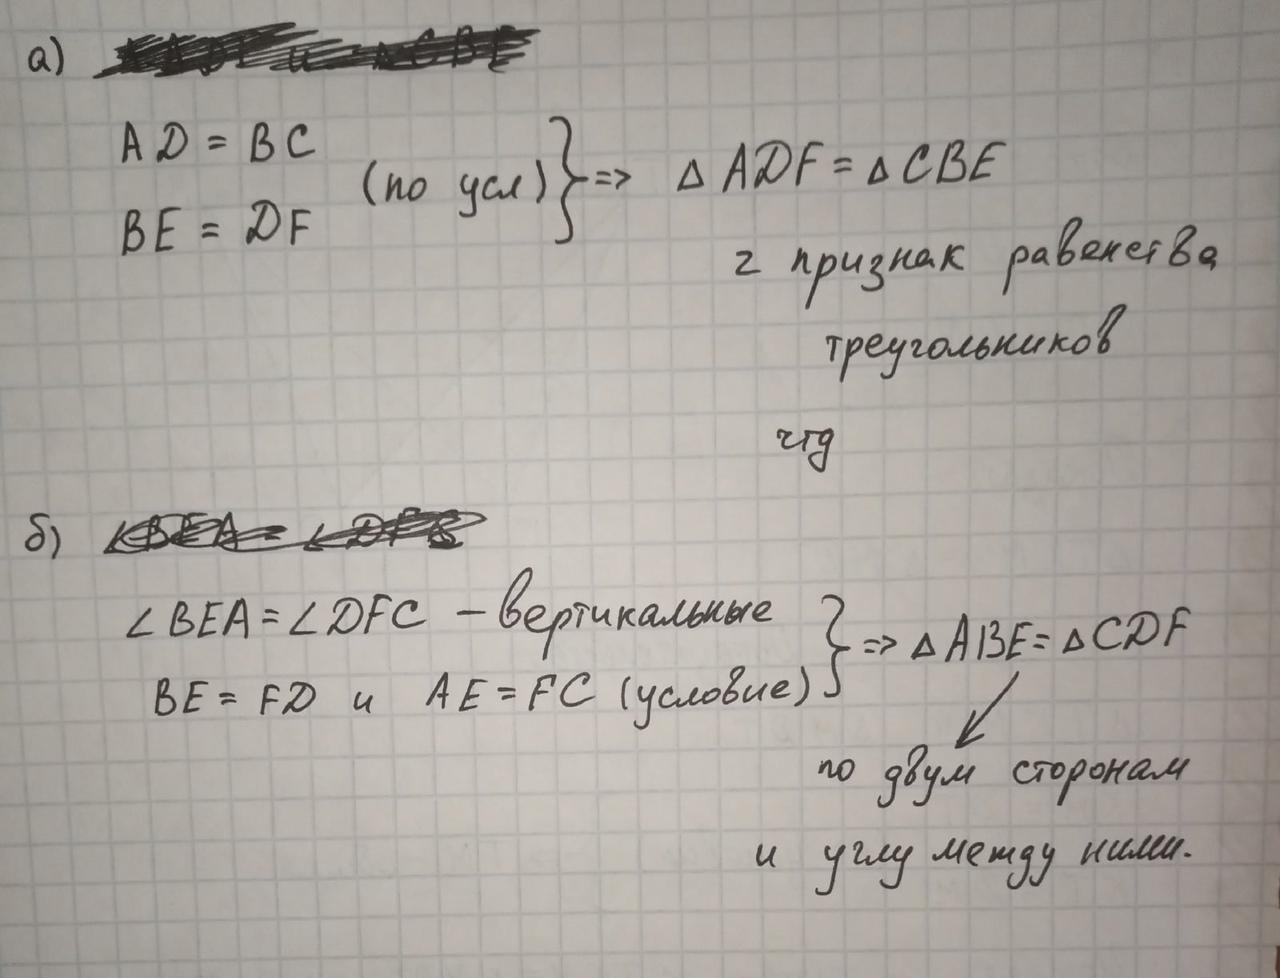 а)
AD = BC
(по усл) } => △ ADF = △ CBE
BE = DF
2 признак равенства
треугольников
чтд
б)
∠BEA = ∠DFC – вертикальные
} => △ ABE = △ CDF
BE = FD и AE = FC (условие)
по двум сторонам
и углу между ними.